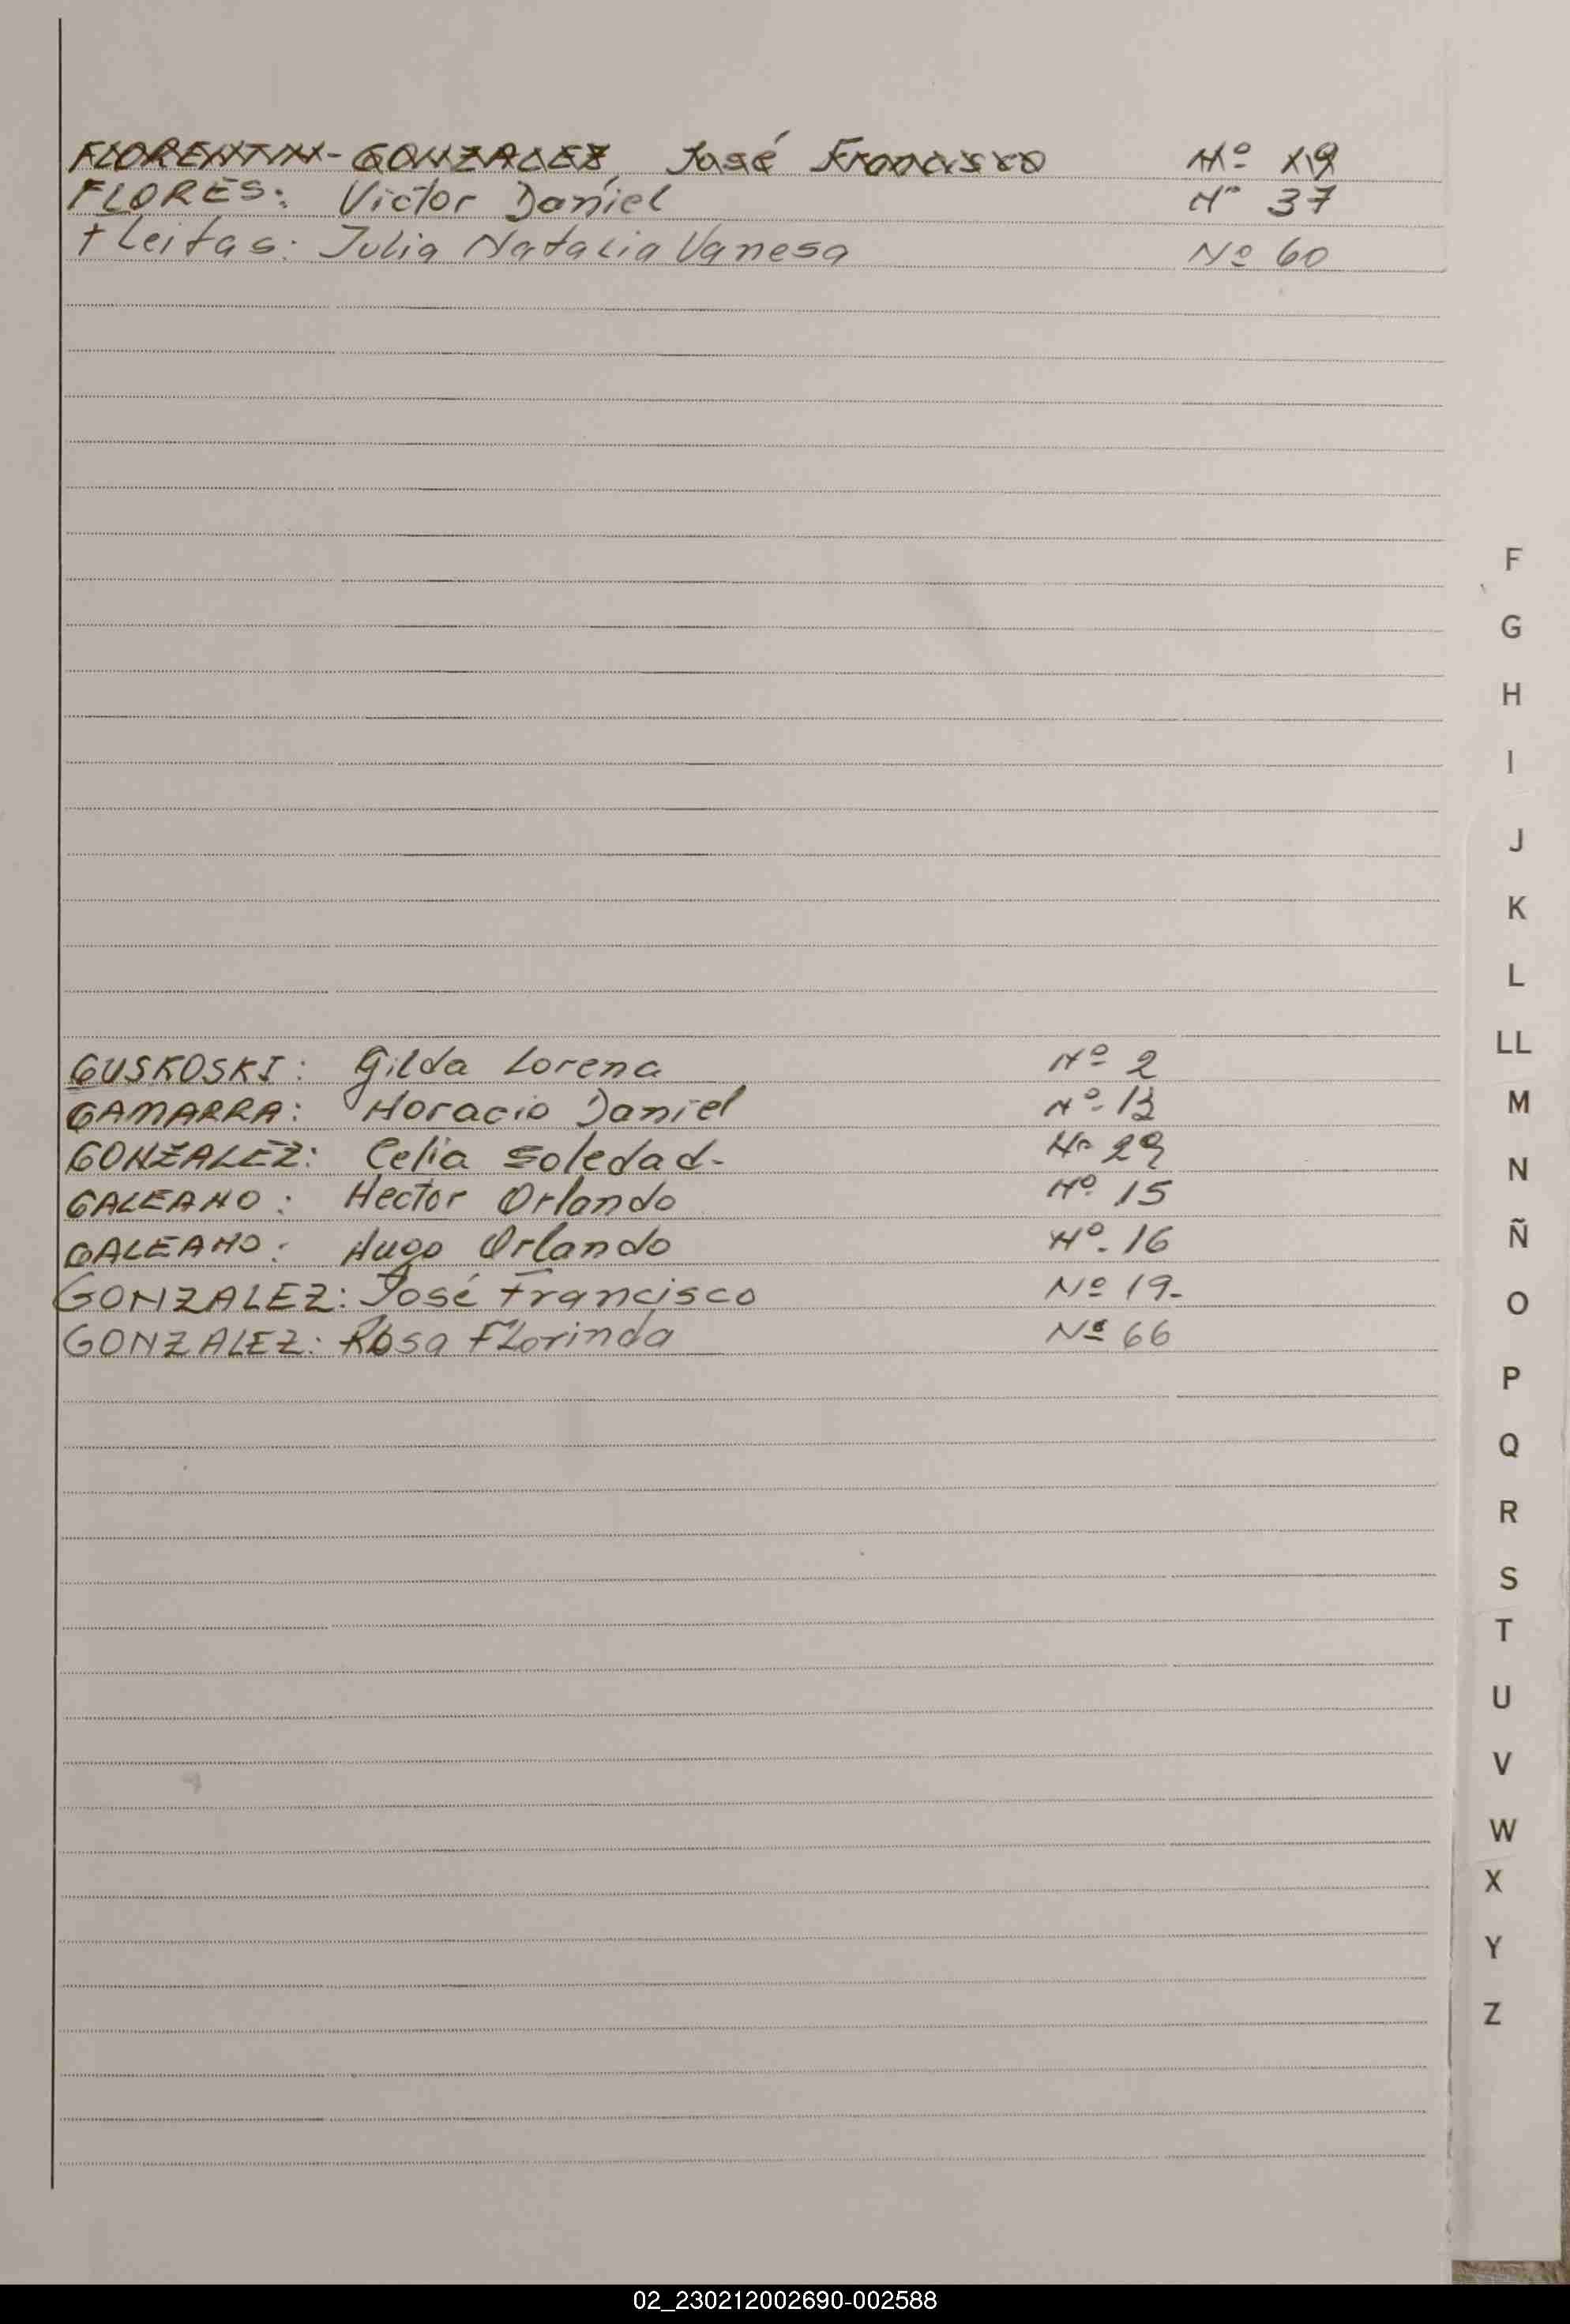 FLORENTIN-GONZALEZ, José Francisco Nº 19
FLORES: Victor Daniel Nº 37
Fleitas: Julia Natalia Vanesa Nº 60
F
G
H
I
J
K
L
LL
M
N
Ñ
O
P
Q
R
S
T
U
V
W
X
Y
Z
GUSKOSKI: Gilda Lorena Nº 2
GAMARRA: Horacio Daniel Nº 13
GONZALEZ: Celia Soledad- Nº 29
GALEANO: Hector Orlando Nº 15
GALEANO: Hugo Orlando Nº. 16
GONZALEZ: José Francisco Nº 19-
GONZALEZ: Rosa Florinda Nº 66
02_230212002690-002588